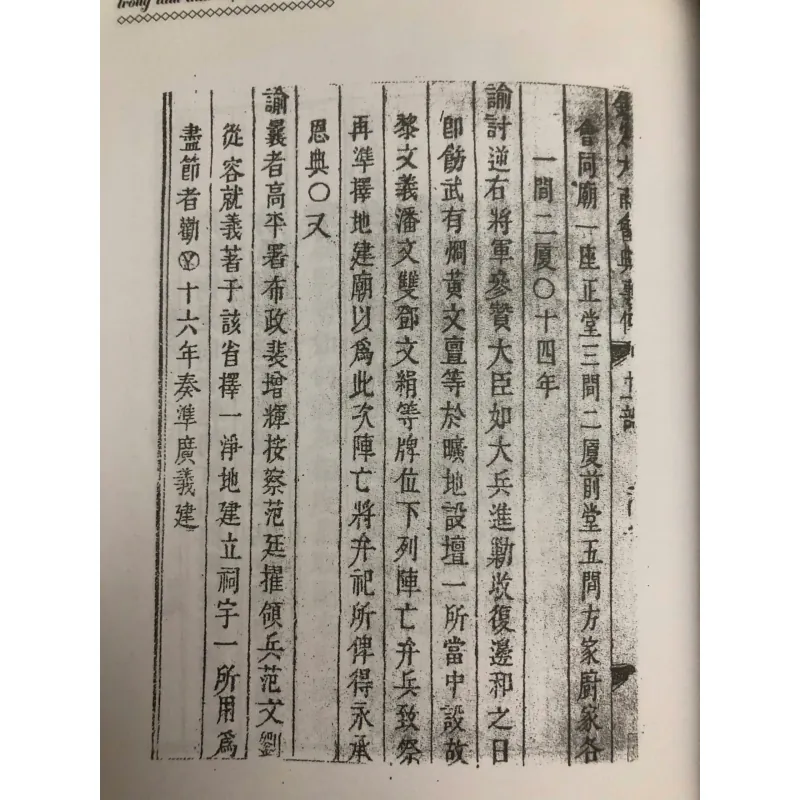 trong
欽定大南會典事例
會同廟一座正堂三間二厦前堂五間方家廚家各
一間二厦〇十四年
諭討逆右將軍參贊大臣如大兵進勦收復邊和之日
卽飭武有燗黃文亶等於曠地設壇一所當中設故
黎文義潘文雙鄧文絹等牌位下列陣亡弁兵致祭
再準擇地建廟以爲此次陣亡將弁祀所俾得永承
恩典〇又
諭曩者高平署布政裴增輝按察范廷擢領兵范文劉
從容就義著于該省擇一淨地建立祠宇一所用爲
盡節者勸十六年奏準廣義建